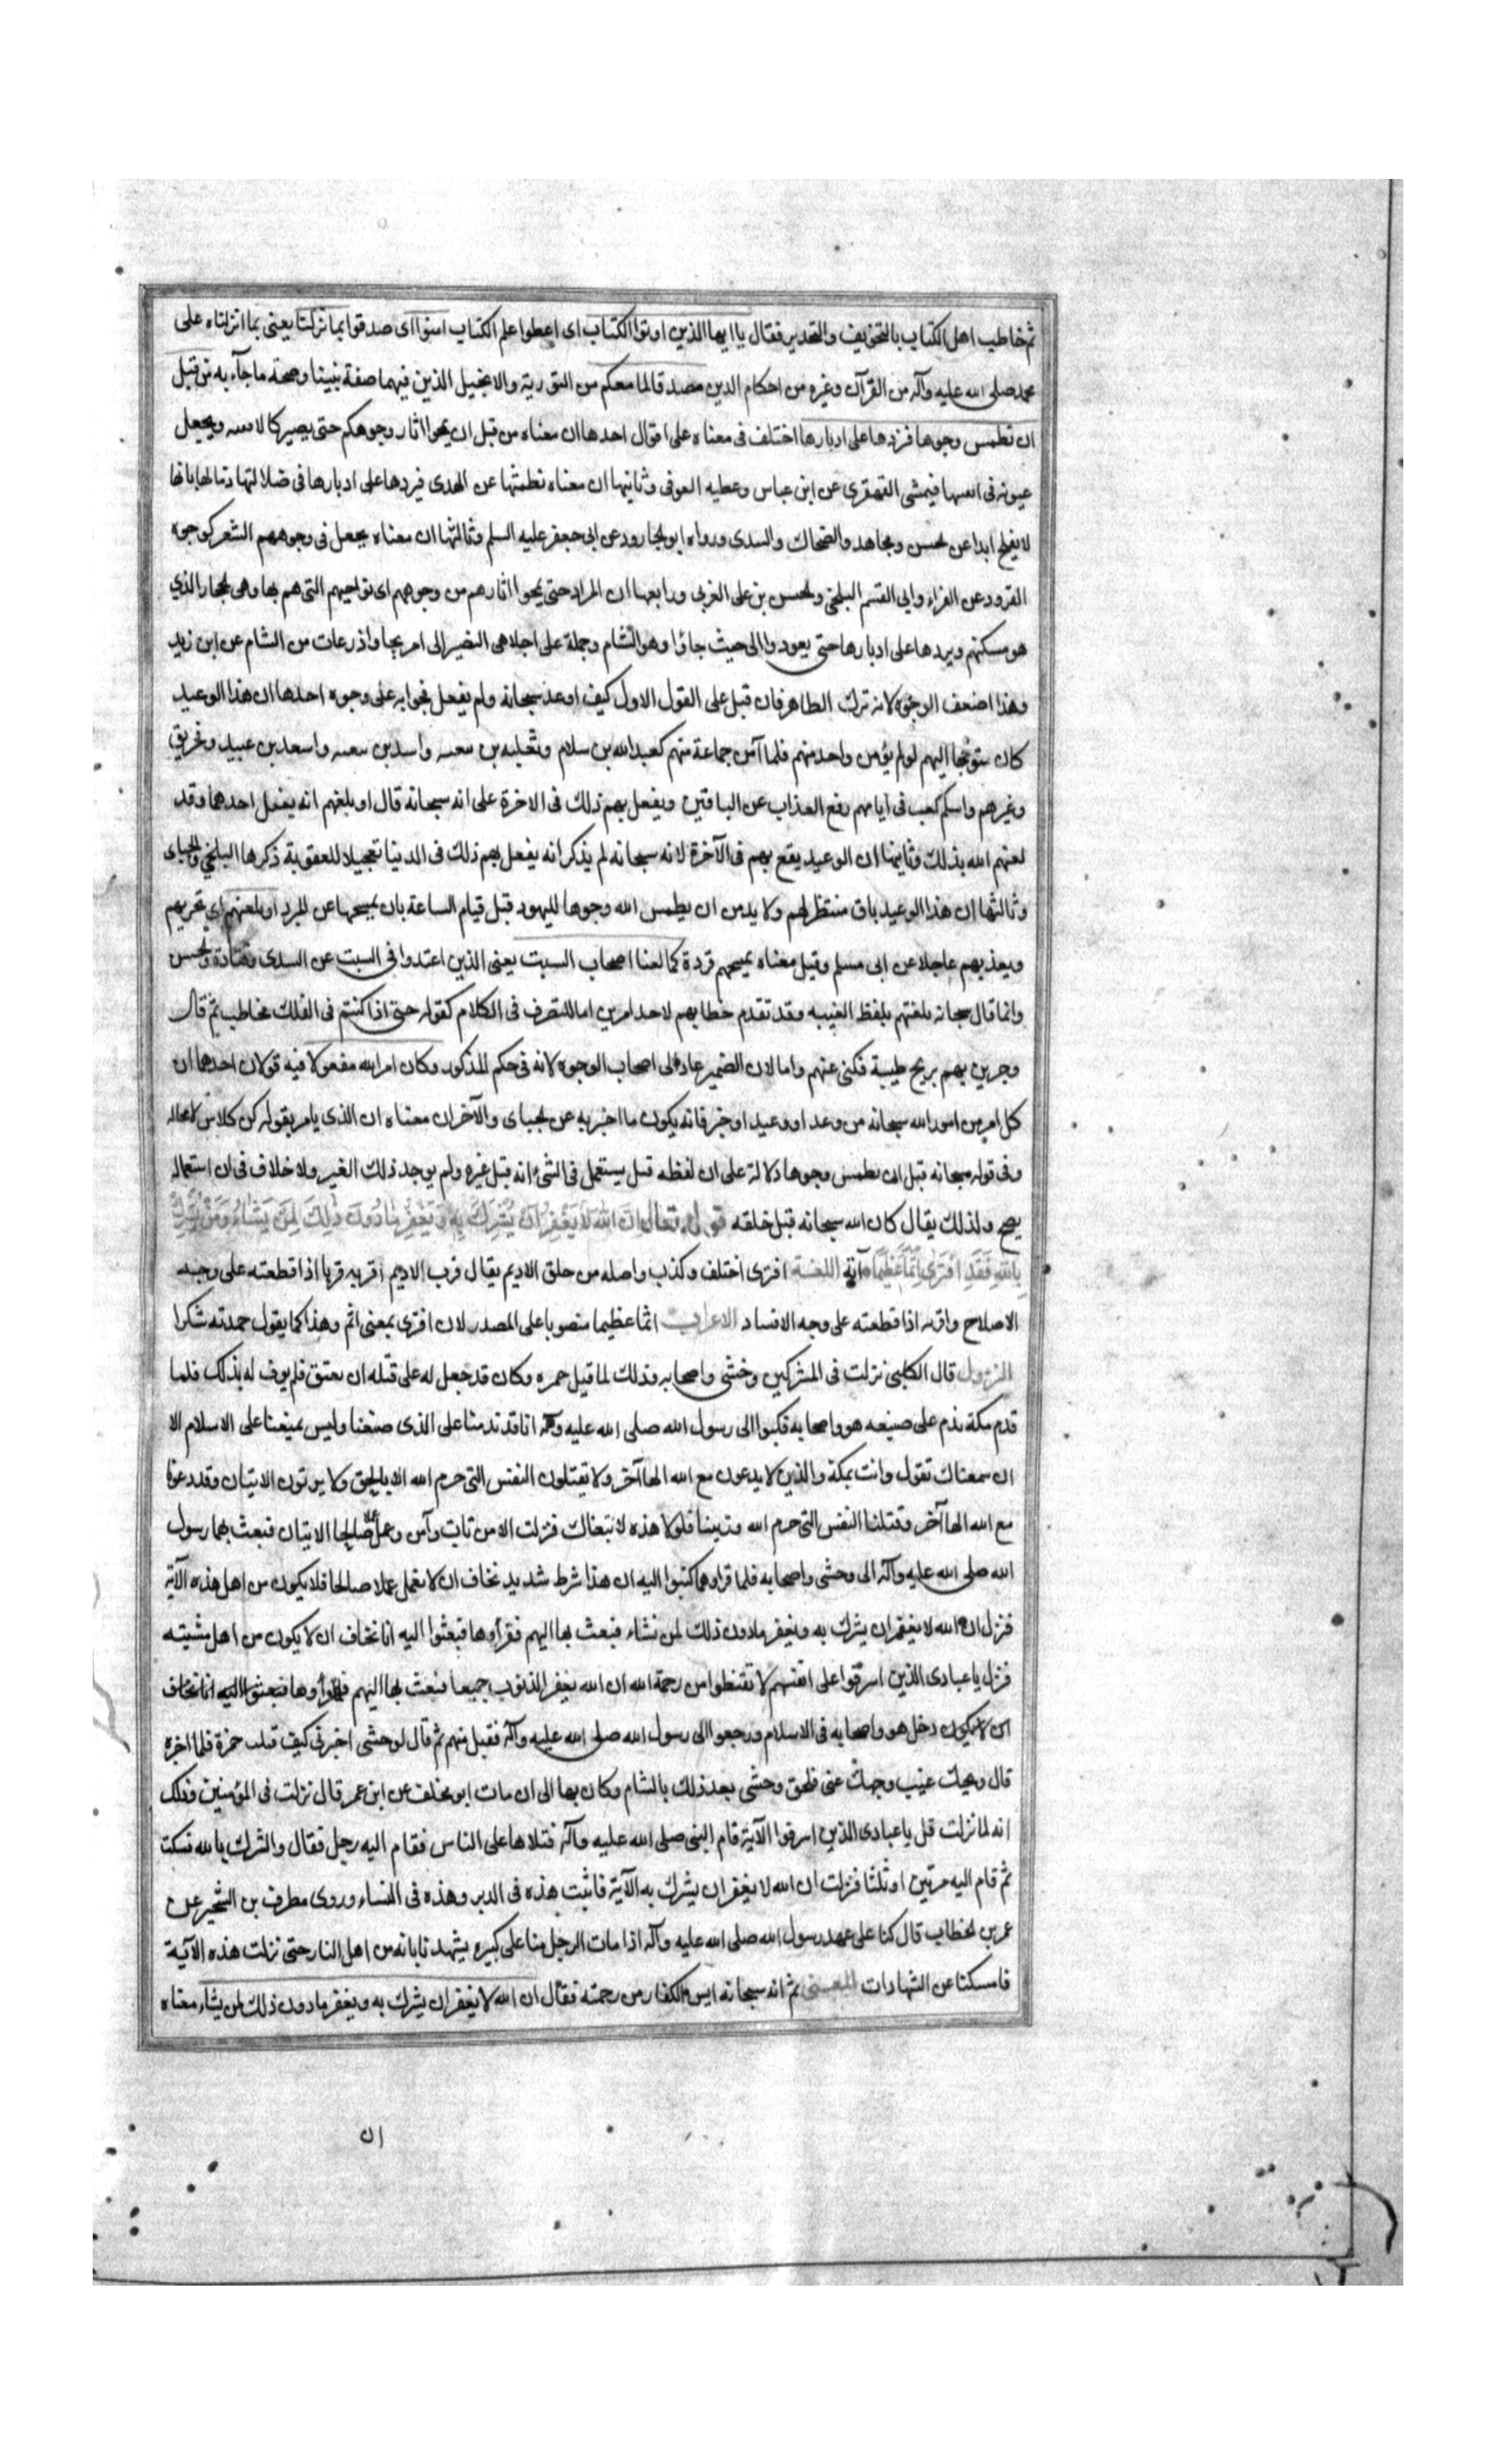 ثم خاطب اهل الكتاب بالتخويف والتحذير فقال يا ايها الذين اوتوا الكتاب اى اعطوا علم الكتاب امنوا اى صدقوا بما نزلنا يعنى بما انزلناه على
محمد صلى الله عليه وآله من القرآن وغيره من احكام الدين مصدقا لما معكم من التورية والانجيل الذين فيهما صفة نبينا وصحة ما جآء به من قبل
ان نطمس وجوها فنردها على ادبارها اختلف فى معناه على اقوال احدها ان معناه من قبل ان يمحوا اثار وجوهكم حتى يصير كالاقفيه ويجعل
عيونه فى فيمشى القهقرى عن ابن عباس وعطيه العوفى وثانيها ان معناه نطمسها عن الهدى فيردها على ادبارها فى ضلالتها ذما لها بانها
لا يفلح ابدا عن لحسن ومجاهد والضحاك والسدى ورواه ابو الجارود عن ابى جعفر عليه السلم وثالثها ان معناه يجعل فى وجوههم الشعر كوجوه
القرود عن الفراء وابى القسم البلخى ولحسن بن على المغربى ورابعها ان المراد حتى يمحوا اثارهم من وجوههم اى نواحيهم التى هم بها وهى لحجاز الذي
هو مسكنهم ويردها على ادبارها حتى يعودوا الى حيث جاؤا وهو الشام وحمله على اجلاء بنى النضير الى اريحا واذرعات من الشام عن ابن زيد
وهذا اضعف الوجوه لانه ترك الظاهر فان قيل على القول الاول كيف اوعد سبحانه ولم يفعل فجوابه على وجوه احدها ان هذا الوعيد
كان متوجها اليهم لو لم يؤمن واحد منهم فلما آمن جماعة منهم كعبد الله بن سلام وثعلبه بن سعيه واسد بن سعيه واسعد بن عبيد ومخريق
وغيرهم واسلم كعب فى ايام رفع العذاب عن الباقين ويفعل بهم ذلك فى الاخرة على انه سبحانه قال او يلعنهم انه يفعل احدها وقد
لعنهم الله بذلك وثانيها ان الوعيد يقع بهم فى الآخرة لانه سبحانه لم يذكر انه يفعل بهم ذلك فى الدنيا تعجيلا للعقوبة ذكرها البلخي والجباى
وثالثها ان هذا الوعيد باق منتظر لهم ولا بد من ان يطمس الله وجوها لليهود قبل قيام الساعة بان يمسحها عن المبرد او يلعنهم اي نخزيهم
ويعذبهم عاجلا عن ابى مسلم وقيل معناه يمسخهم قردة كما لعنا اصحاب السبت يعنى الذين اعتدوا فى السبت عن السدى وقتادة ولحسن
وانما قال سبحانه نلعنهم بلفظ الغيبه وقد تقدم خطابهم لاحد امرين اما للتصرف فى الكلام كقوله حتى اذا كنتم فى الفلك مخاطب ثم قال
وجرين بهم بريح طيبة فكنى عنهم واما لان الضمير عاد الى اصحاب الوجوه لانه فى حكم المذكور وكان امر الله مفعولا فيه قولان احدهما ان
كل امر من امور الله سبحانه من وعد او وعيد او خبر فانه يكون ما اخبر به عن لجباى والآخر ان معناه ان الذى يامر بقوله كن كلام لا محاله
وفى قوله سبحانه قبل ان نطمس وجوها دلالة على ان لفظه قبل يستعمل فى الشىء انه قبل غيره ولم يوجد ذلك الغير ولا خلاف فى ان استعماله
يصح ولذلك يقال كان الله سبحانه قبل خلقه قوله تعالى ان الله لا يغفر ان يشرك به ويغفر ما دون ذلك لمن يشاء ومن يشرك
بالله فقد افترى اثما عظيما آية اللغة افترى اختلف وكذب واصله من خلق الاديم يقال فريت الاديم افريه فريا اذا قطعته على وجه
الاصلاح وافريه اذا قطعته على وجه الافساد الاعراب اثما عظيما منصوبا على المصدر لان افترى بمعنى اثم وهذا كما يقول حمدته شكرا
النزول قال الكلبى نزلت فى المشركين وحشى واصحابه وذلك لما قتل حمزه وكان قد جعل له على قتله ان يعتق فلم يوف له بذلك فلما
قدم مكة ندم على صنيعه هو واصحابه فكتبوا الى رسول الله صلى الله عليه وآله انا قد ندمنا على الذى صنعنا وليس يمنعنا على الاسلام الا
ان سمعناك تقول وانت بمكة والذين لا يدعون مع الله الها آخر ولا يقتلون النفس التى حرم الله الا بالحق ولا يزنون الايتان وقد دعونا
مع الله الها آخر وقتلنا النفس التى حرم الله وزنينا فلولا هذه لاتبعناك فنزلت الا من تاب وآمن وعمل عملا صالحا الايتان فبعث بهما رسول
الله صلى الله عليه وآله الى وحشى واصحابه فلما قراوهما كتبوا اليه ان هذا شرط شديد نخاف ان لا نعمل عملا صالحا فلا يكون من اهل هذه الآية
فنزل ان الله لا يغفر ان يشرك به ويغفر ما دون ذلك لمن يشاء فبعث بها اليهم فقرأوها فبعثوا اليه انا نخاف ان لا يكون من اهل مشيته
فنزل يا عبادى الذين اسرفوا على انفسهم لا تقنطوا من رحمة الله ان الله يغفر الذنوب جميعا فبعث بها اليهم فقرأوها فبعثوا اليه انا نخاف
ان لا يكون دخل هو واصحابه فى الاسلام ورجعوا الى رسول الله صلى الله عليه وآله فقبل منهم ثم قال لوحشى اخبرنى كيف قتلت حمزة فلما اخبره
قال ويحك غيب وجهك عنى فلحق وحشى بعد ذلك بالشام وكان بها الى ان مات ابو مخلف عن ابن عمر قال نزلت فى المؤمنين وذلك
انه لما نزلت قل يا عبادى الذين اسرفوا الآية قام النبى صلى الله عليه وآله فتلاها على الناس فقام اليه رجل فقال والشرك بالله فسكت
ثم قام اليه مرتين او ثلثا فنزلت ان الله لا يغفر ان يشرك به الآية فاثبت هذه فى الزمر وهذه فى النساء وروى مطرف بن الشخير عن
عمر بن لخطاب قال كنا على عهد رسول الله صلى الله عليه وآله اذا مات الرجل منا على كبيره يشهدنا بانه من اهل النار حتى نزلت هذه الآية
فامسكنا عن الشهادات المعنى ثم انه سبحانه ايس الكفار من رحمته فقال ان الله لا يغفر ان يشرك به ويغفر ما دون ذلك لمن يشاء معناه
ان